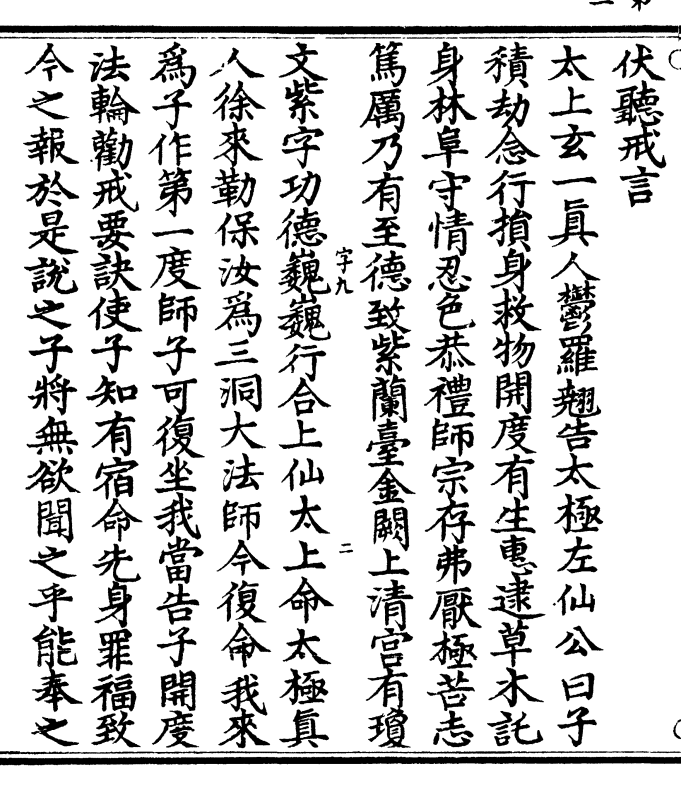 伏聽戒言
太上玄一眞人鬱羅翹告太極左仙公曰子
積劫念行損身救物開度有生惠逮草木託
身林阜守情忍色恭禮師宗存弗厭極苦志
篤厲乃有至德致紫蘭臺金闕上清宮有瓊
字九
二
文紫字功德巍巍行合上仙太上命太極眞
人徐來勒保汝爲三洞大法師今復命我來
爲子作第一度師子可復坐我當告子開度
法輪勸戒要訣使子知有宿命先身罪福致
今之報於是說之子將無欲聞之乎能奉之